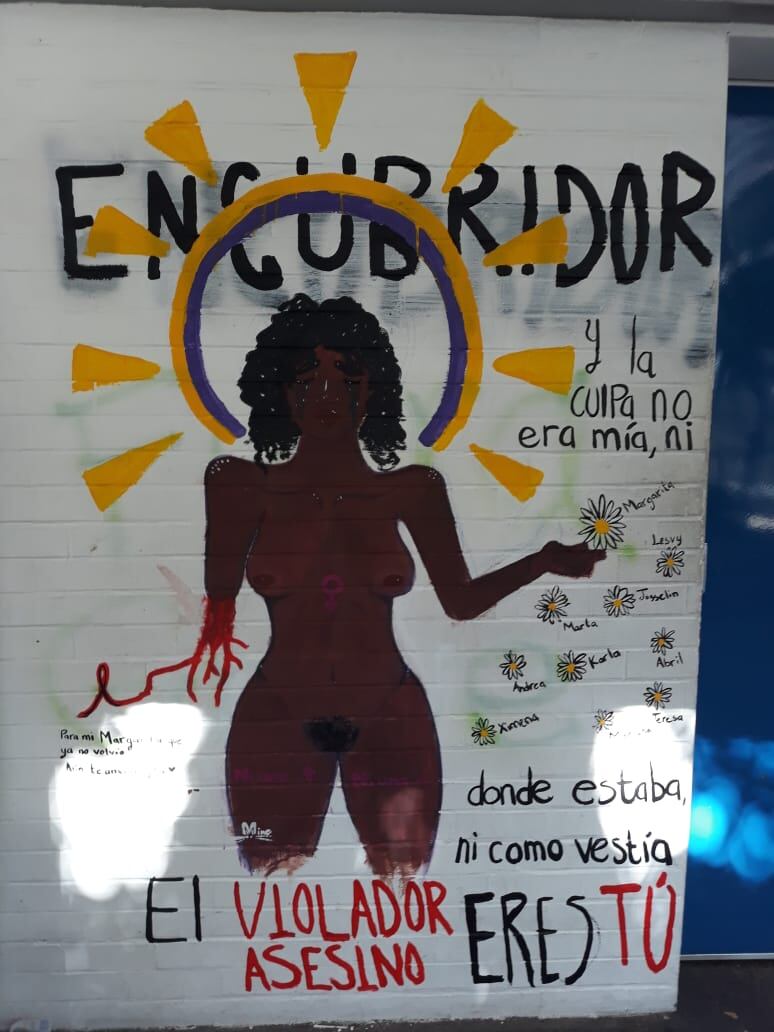 ENCUBRIDOR
y la
culpa no
era mía, ni
Margarita
Lesvy
Josselin
Marta
Abril
Karla
Andrea
Teresa
Ximena
Para mi
ya no volvio
donde estaba,
ni como vestía
Mine
El VIOLADOR
ASESINO
ERES TÚ